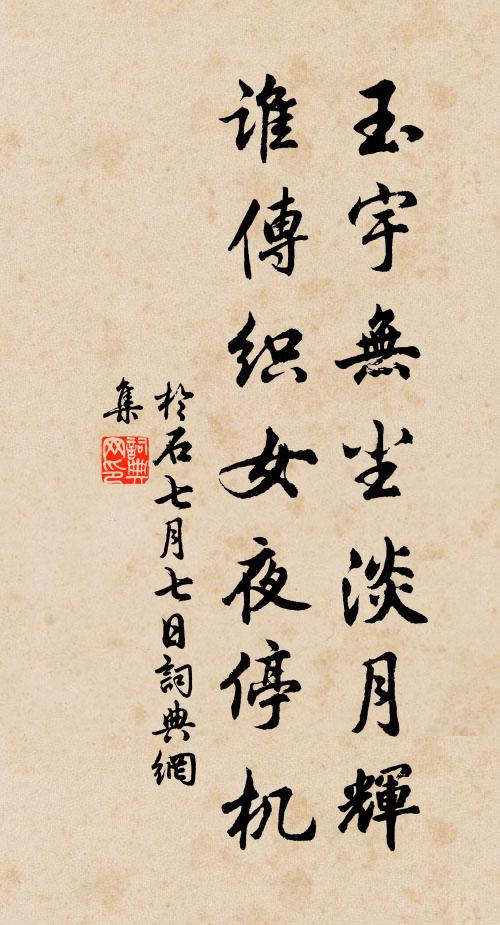 玉宇無尘淡月輝
谁傳织女夜停机
於石七月七日詞典網
集
詞典
网印